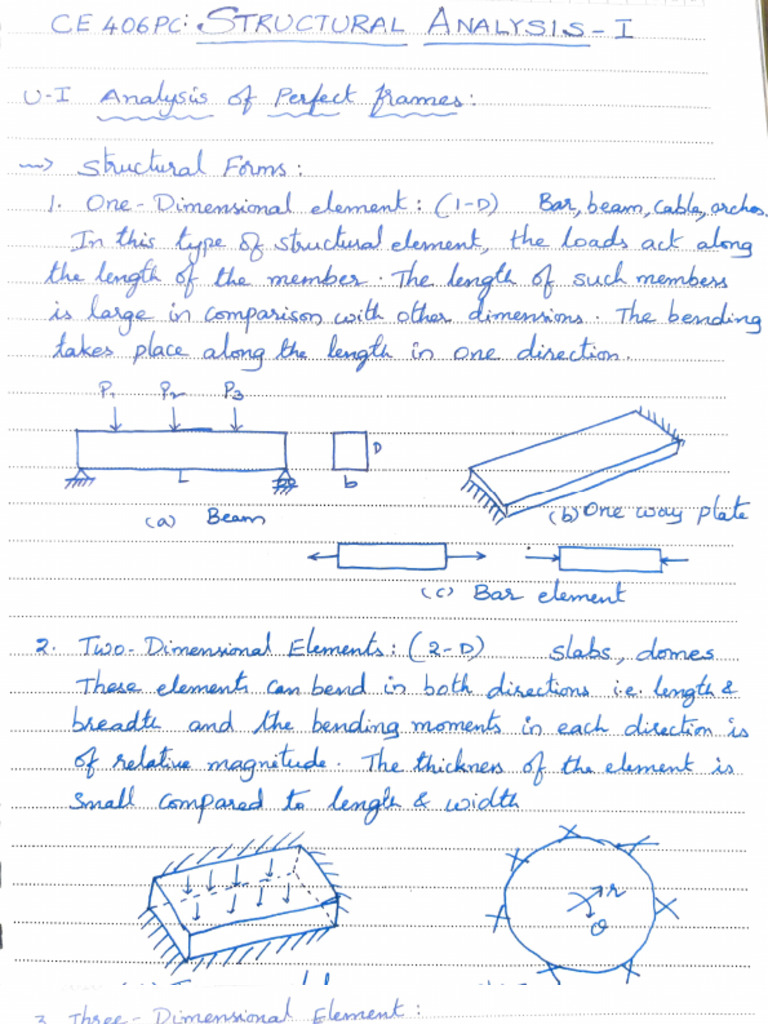 CE 406PC: STRUCTURAL ANALYSIS - I
U-I Analysis of Perfect frames:
Structural Forms:
1. One-Dimensional element: (1-D) Bar, beam, cable, arches.
In this type of structural element, the loads act along
the length of the member. The length of such members
is large in comparison with other dimensions. The bending
takes place along the length in one direction.
P1 P2 P3
D
L b
(a) Beam
(b) One way plate
(c) Bar element
2. Two-Dimensional Elements: (2-D) slabs, domes
These elements can bend in both directions i.e. length &
breadth and the bending moments in each direction is
of relative magnitude. The thickness of the element is
small compared to length & width
r
θ
3. Three-Dimensional Element: